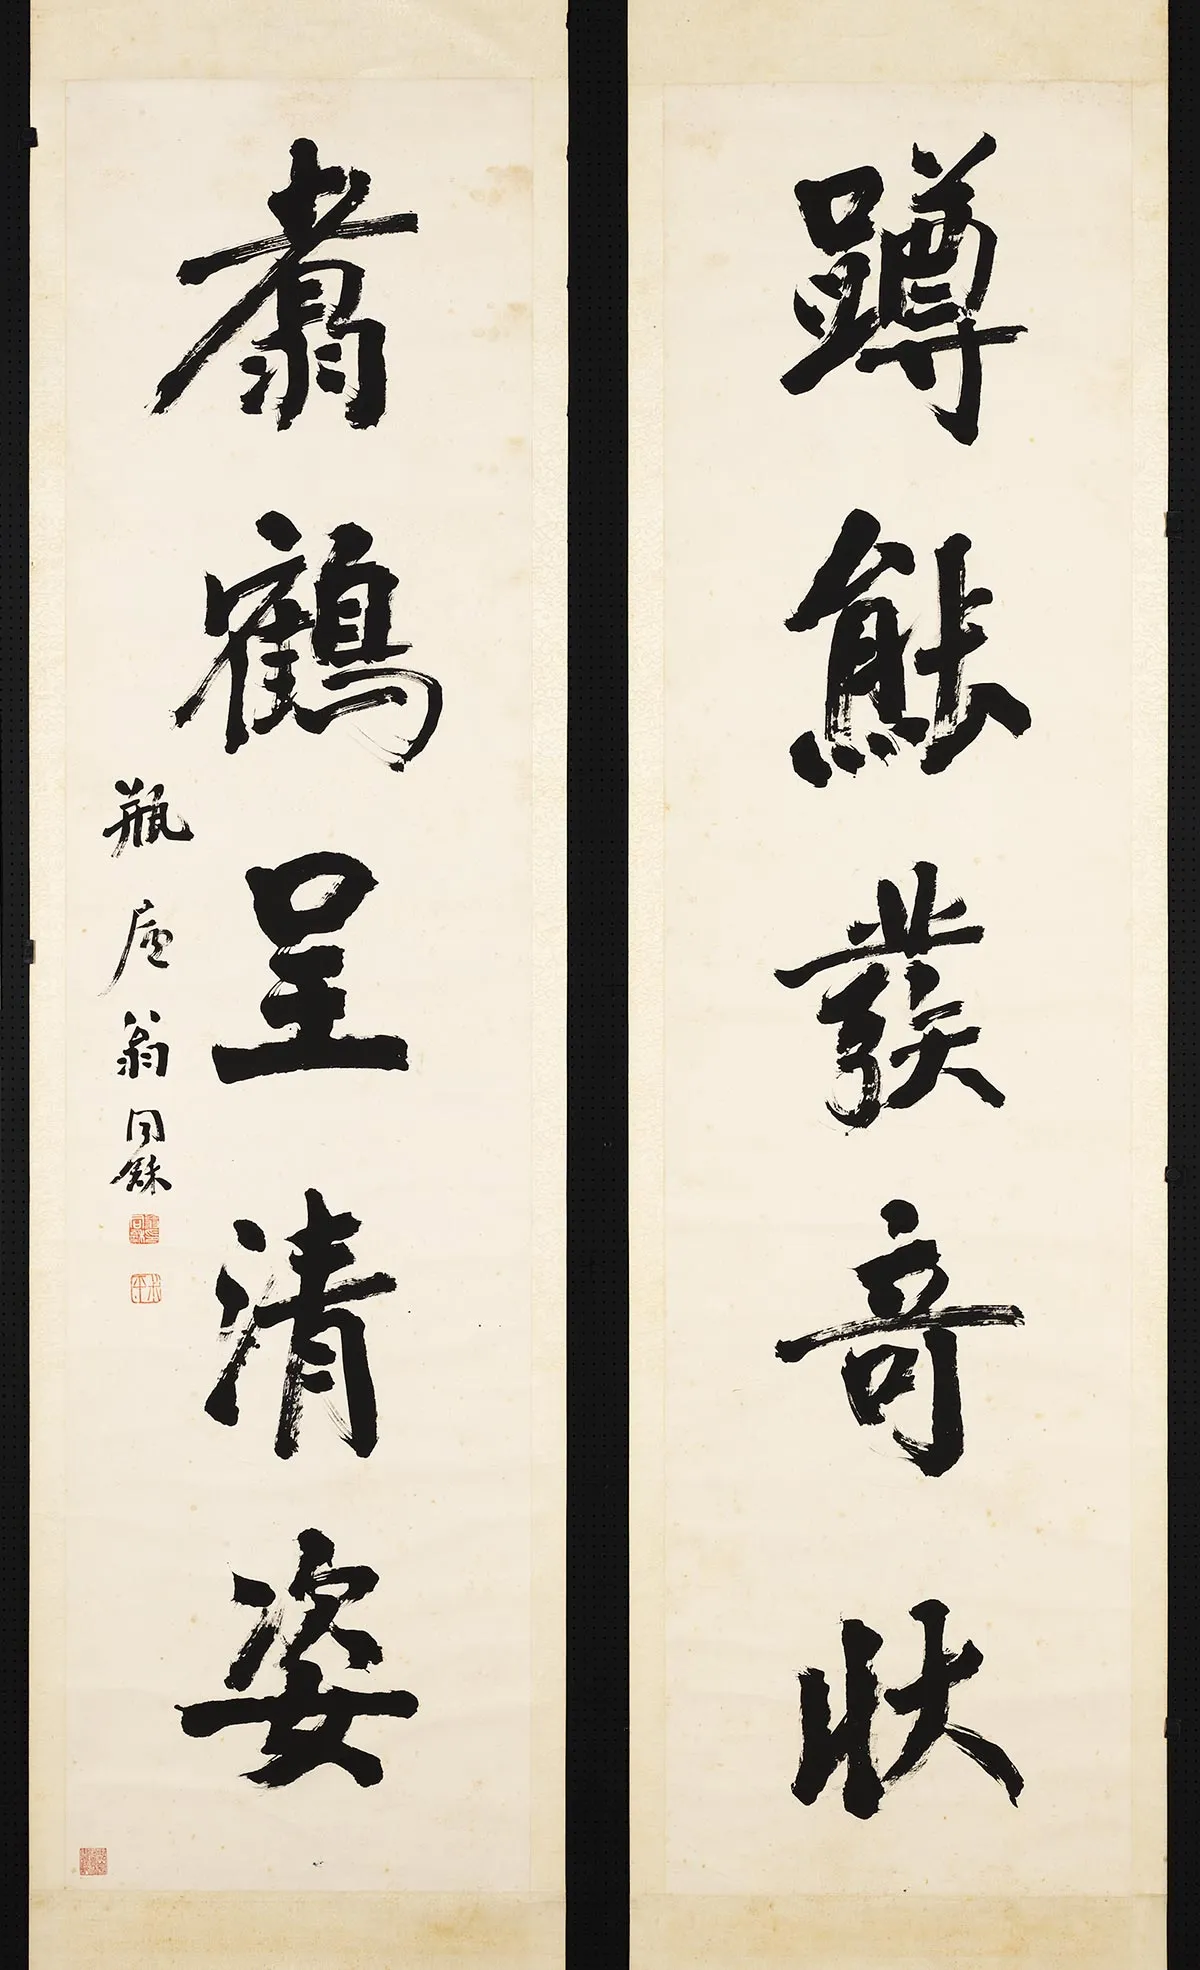 蹲熊發奇狀
翥鶴呈清姿
瓶廬翁同龢